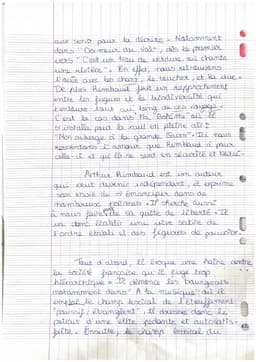 aux sens pour la décrire. Notamment
dans "Dormeur du Val", dès le premier
vers "C'est un trou de verdure où chante
une rivière". En effet, nous retrouvons
l'ouïe avec le chant, le toucher, et la vue.
De plus Rimbaud fait un rapprochement
entre les fugues et la biodiversité qui
l'entoure tout au long de ces voyages.
C'est le cas dans "Ma Bohème" où il
s'installe pour la nuit en pleine air:
"Mon auberge à la grande Ourse". Ici nous
ressentons l'amour que Rimbaud a pour
elle: il et qu'il se sent en sécurité et
Arthur Rimbaud est un auteur
qui veut devenir indépendant, et exprime
son envie de s'émanciper dans de
nombreux poèmes. Il cherche aussi
à nous faire de sa quête de liberté. Il
va donc établir une vive satire de
l'ordre établi et des figures de pouvoir.
Tout d'abord, il évoque une haine contre
la société française qu'il juge trop
hiérarchique. Il dénonce les bourgeois
notamment dans "À la musique" où il
emploi le champ lexical de l'étouffement
"poussif, étranglent". Il dresse donc le
portrait d'une élite pédante et autosatis-
faite. Ensuite, le champ lexical du